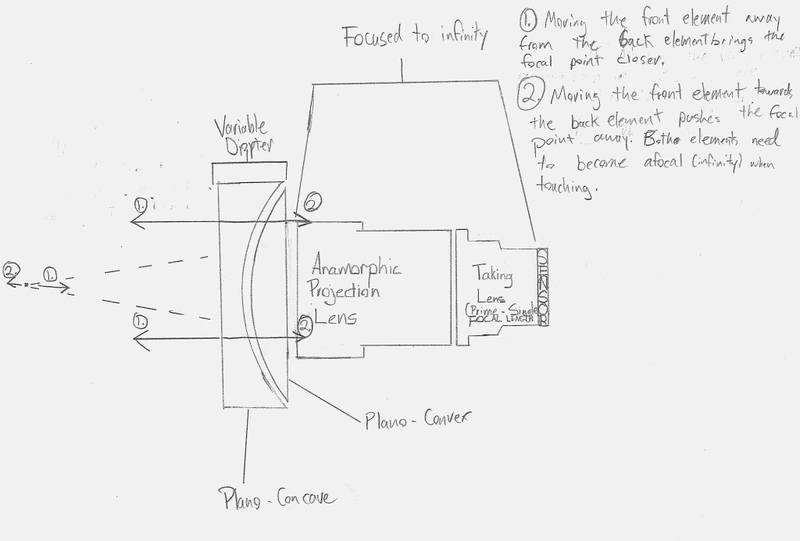 Focused to infinity
① Moving the front element away
from the back element brings the
focal point closer.
②. Moving the front element towards
the back element pushes the focal
point away. Both elements need
to become afocal (infinity) when
touching.
Variable
Diopter
①.
②
②.
①.
Anamorphic
Projection
Lens
Taking
Lens
(Prime - Single
FOCAL LENGTH)
SENSOR
①.
②.
Plano - Convex
Plano - Concave